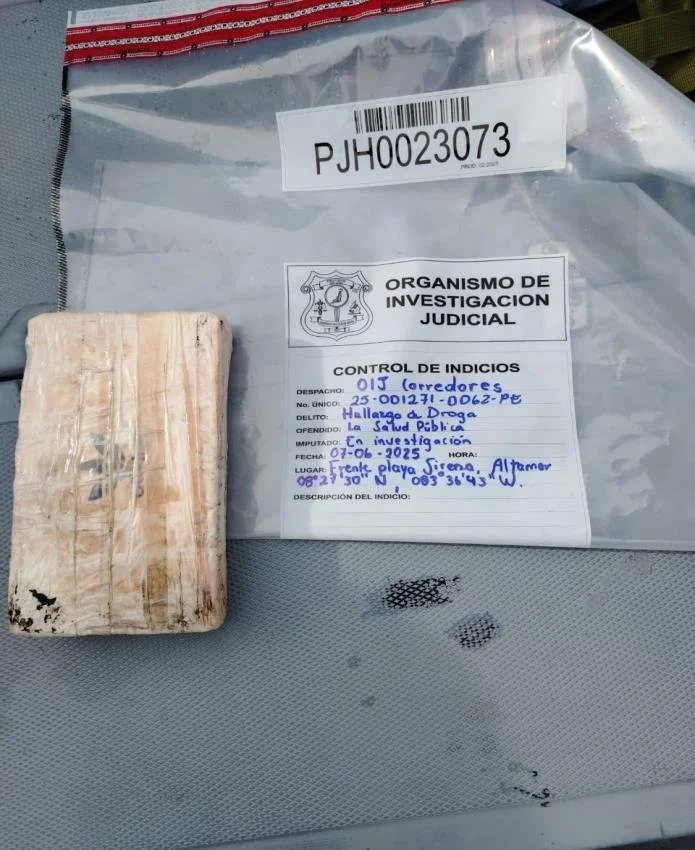 PJH0023073
PROD: 02-2025
ORGANISMO DE
INVESTIGACION
JUDICIAL
CONTROL DE INDICIOS
DESPACHO: OIJ Corredores
No. ÚNICO: 25-001271-0062-PE
DELITO: Hallazgo de Droga
OFENDIDO: La Salud Pública
IMPUTADO: En investigación
FECHA: 07-06-2025 HORA:
LUGAR: Frente playa Sirena, Altamar
08°27'30" N, 083°36'43" W.
DESCRIPCIÓN DEL INDICIO: